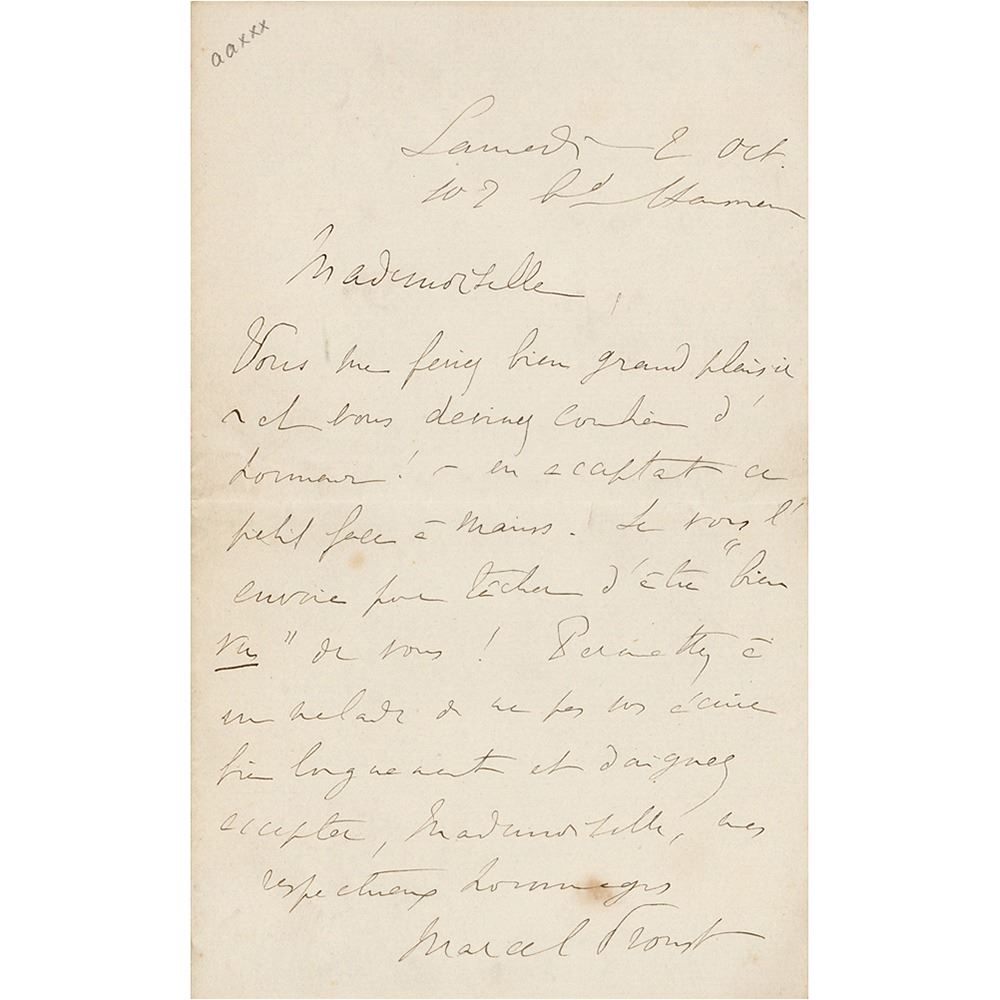 aaxxx
Samedi 2 Oct.
102 bd Haussman
Mademoiselle,
Vous me feriez bien grand plaisir
– et vous devinez combien d'
honneur ! – en acceptant ce
petit face à mains. Je vous l'
envoie pour tâcher d'être "bien
vu" de vous ! Permettez à
un malade de ne pas vous écrire
bien longuement et daignez
accepter, Mademoiselle, mes
respectueux hommages
Marcel Proust